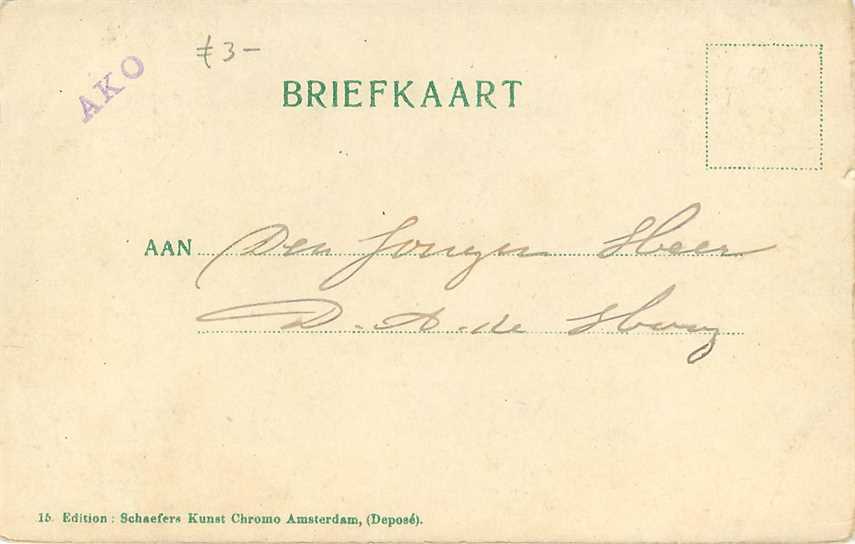 AKO
£ 3 -
BRIEFKAART
AAN Den Jongen Heer
D. A. de
15. Edition : Schaefers Kunst Chromo Amsterdam, (Deposé).